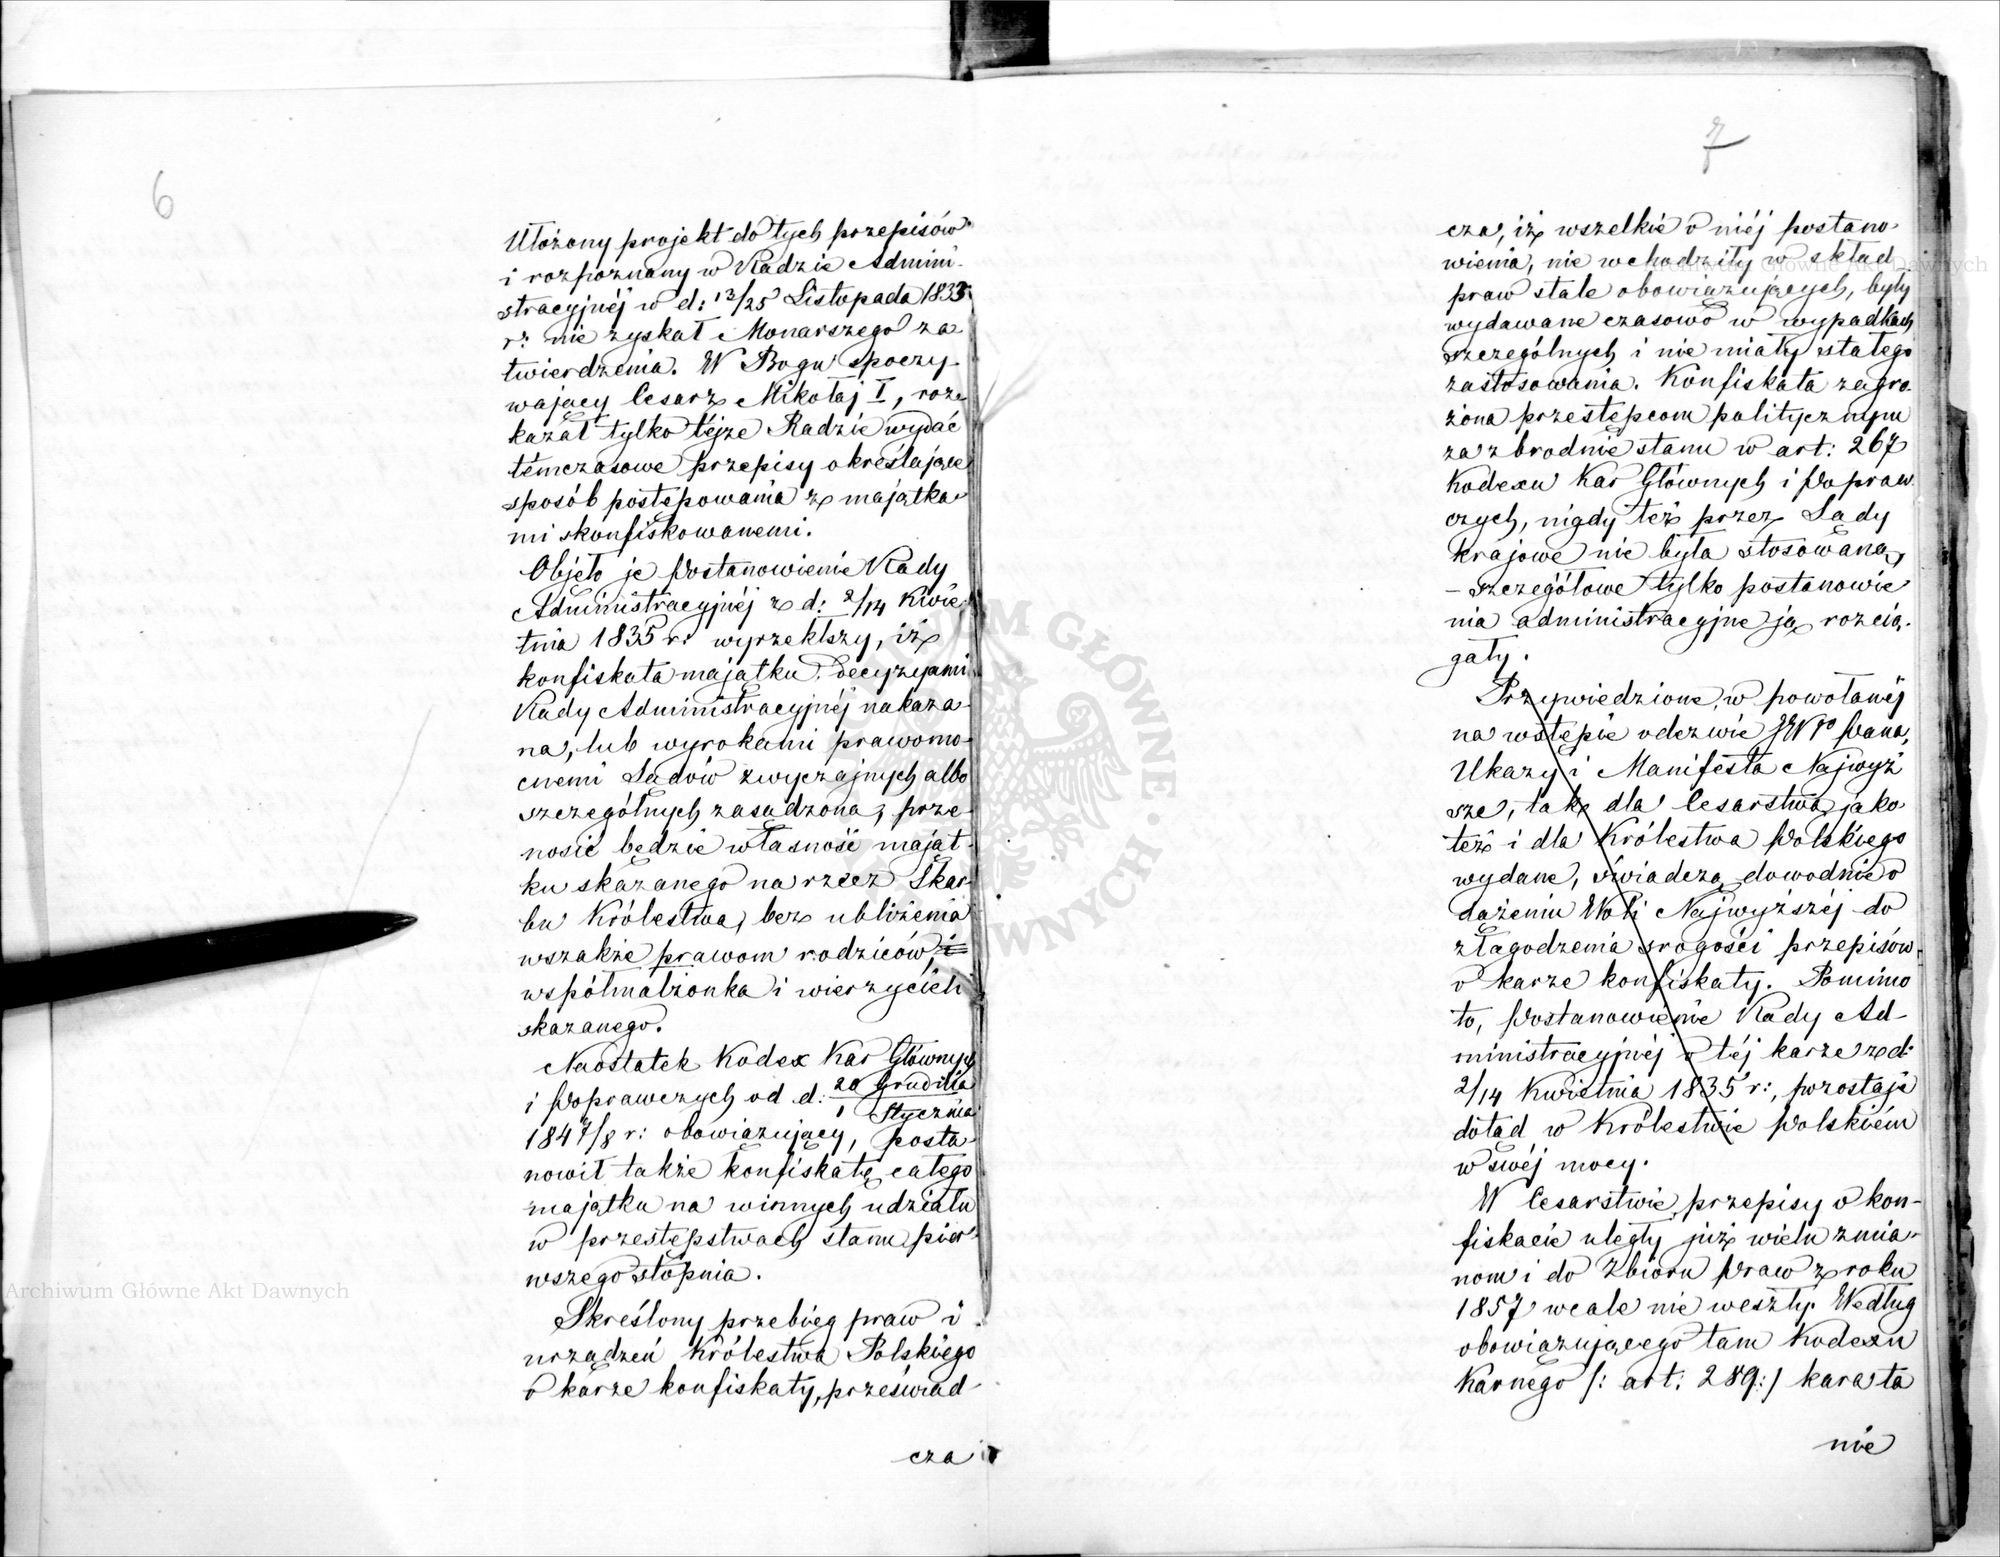 6
Ułożony projekt do tych przepisów
i rozpoznany w Radzie Admini-
stracyjnéj w d: 13/25 Listopada 1833
r: nie zyskał Monarszego za
twierdzenia. W Bogu spoczy-
wający Cesarz Mikołaj I, roz-
kazał tylko tejże Radzie wydać
témczasowe przepisy określające
sposób postępowania z majątka-
mi skonfiskowanemi.
Objęło je Postanowienie Rady
Administracyjnéj z d: 2/14 Kwie-
tnia 1835 r: wyrzekłszy, iż
konfiskata majątku, decyzyami
Rady Administracyjnéj nakaza-
na, lub wyrokami prawomo-
cnemi Sądów zwyczajnych albo
szczególnych zasądzona, prze-
nosić będzie własność mająt-
ku skazanego na rzecz Skar-
bu Królestwa, bez ubliżenia
wszakże prawom rodziców, i
współmałżonka i wierzycieli
skazanego.
Naostatek Kodex Kar Głównych
i Poprawczych od d: 20 Grudnia
1 Stycznia
1847/8 r: obowiązujący, posta-
nowił także konfiskatę całego
majątku na winnych udziału
w przestępstwach stanu pier-
wszego stopnia.
Skreślony przebieg praw i
urządzeń Królestwa Polskiego
o karze konfiskaty, przeświad-
cza
7
cza, iż wszelkie o niéj postano-
wienia, nie wchodziły w skład
praw stale obowiązujących, były
wydawane czasowo w wypadkach
szczególnych i nie miały stałego
zastosowania. Konfiskata zagro-
żona przestępcom politycznym
za zbrodnie stanu w art: 267
Kodexu Kar Głównych i Popraw
czych, nigdy też przez Sądy
krajowe nie była stosowaną,
– szczegółowe tylko postanowie
nia administracyjne ją rozcią-
gały.
Przywiedzione, w powołanéj
na wstępie odezwie JWgo Pana,
Ukazy i Manifesta Najwyż
sze, tak dla Cesarstwa jako
też i dla Królestwa Polskiego
wydane, świadczą dowodnie o
dążeniu Woli Najwyższéj do
złagodzenia srogości przepisów
o karze konfiskaty. Pomimo
to, Postanowienie Rady Ad-
ministracyjnéj o téj karze z d:
2/14 Kwietnia 1835 r:, pozostaje
dotąd w Królestwie Polskiém
w swéj mocy.
W Cesarstwie przepisy o kon-
fiskacie uległy już wielu zmia-
nom i do Zbioru Praw z roku
1857 wcale nie weszły. Według
obowiązującego tam Kodexu
Karnego /: art: 289:/ kara ta
nie
Archiwum Główne Akt Dawnych
Archiwum Główne Akt Dawnych